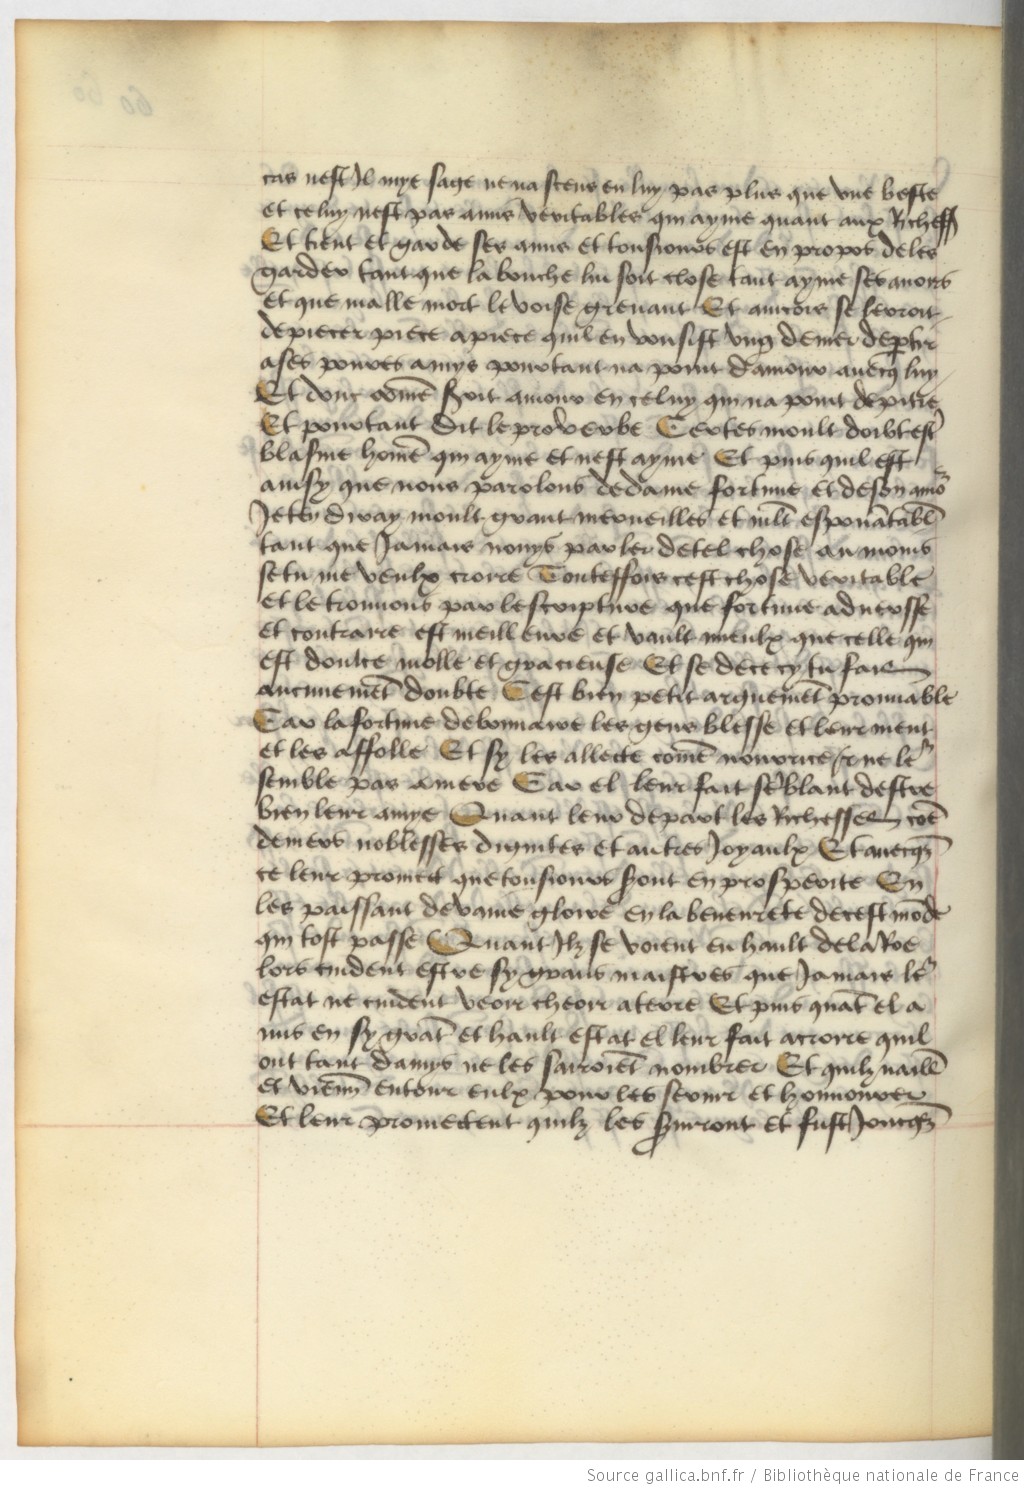 cas nest Il mye sage ne na scens en luy pas plus que vne beste
et celuy nest pas amis veritables qui ayme quant aux Richess
Et tient et garde ses amis et tousiours est en propos de les
garder tant que la bouche lui soit close tant ayme ses auoirs
et que malle mort le voise greuant Et aincois se lerroit
depiecer piece a piece quil en voulsist vng denier deptir
a ses poures amys pourtant na point damour auecq luy
Et donc comē soit amour en celuy qui na point de pitie
Et pourtant dit le prouerbe Certes moult doibt estr
blasme homē qui ayme et nest ayme Et puis quil est
ainsy que nous parlons de dame fortune et de son amo
Je ten diray moult grant merueilles et mlt espouātabl
tant que Jamais nouys parler de tel chose au moins
se tu me veulx croire Touteffois cest chose veritable
et le trouuons par lescripture que fortune aduersse
et contraire est meilleure et vault mieulx que celle qui
est doulce molle et gracieuse Et se de cecy tu fais
aucunemēt doubte Cest bien petit argumēt prouuable
Car la fortune debonnaire les gens blesse et leur ment
et les affolle Et sy les allecte comē nourrice & ne le
semble pas amere Car el leur fait sēblant destre
bien leur amye Quant leur depart les Richesses coē
deniers noblesses dignites et autres Joyaulx Et auecq
ce leur promect que tousiours sont en prosperite En
les paissant de vaine gloire en la beneurete de cest mōde
qui tost passe Quant Ilz se voient en hault de la Roe
lors cuident estre sy grans maistres que Jamais le
estat ne cuident veoir cheoir a terre Et puis quāt el a
mis en sy grāt et hault estat el leur fait acroire quil
ont tant damys ne les sairoiēt nombrer Et quilz vaill
et viennē entour eulx pour les seruir et honnourer
Et leur promectent quilz les seruiront et fust Jouqs